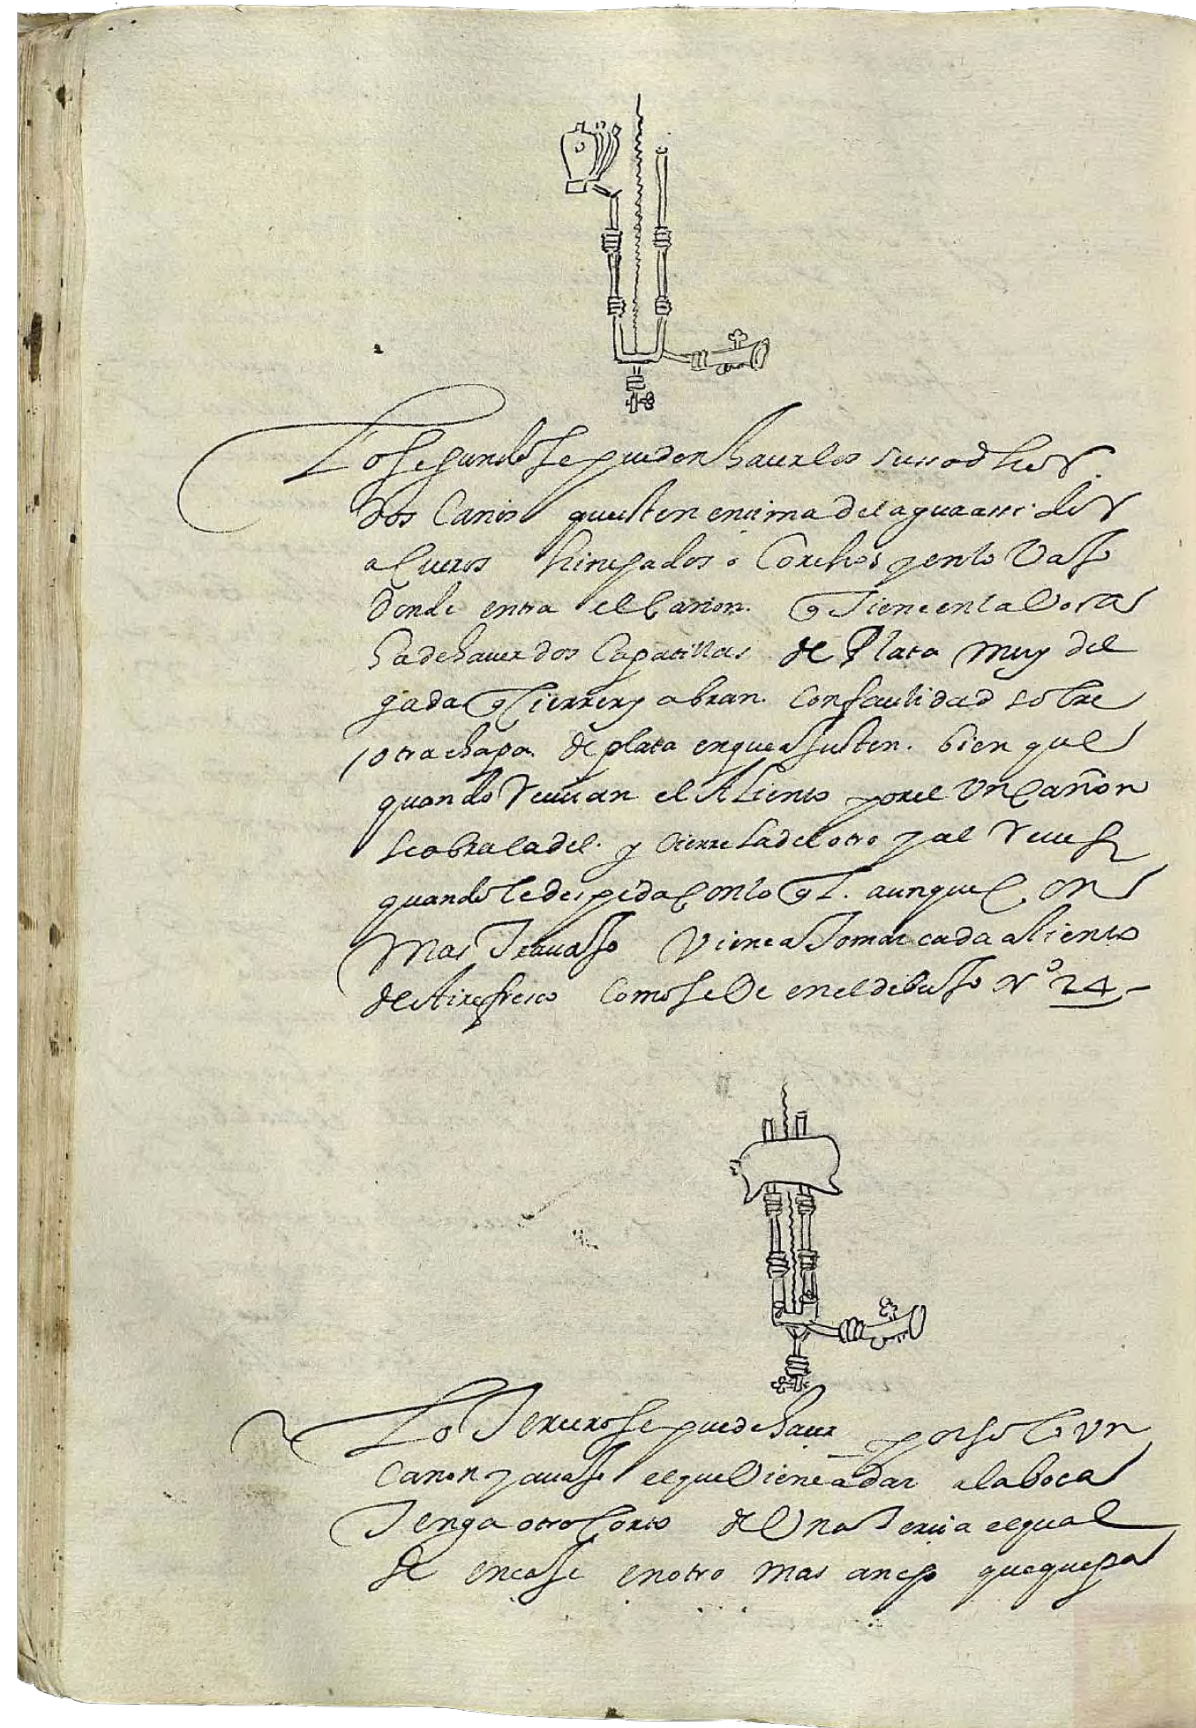 Lo segundo se pueden hauer los susodhos
dos Canos questen encima del agua assidos
a Cueros hinchados o Corchos y en lo Vaxo
donde entra el Cañon q Tiene en la Voca
ha de hauer dos Capatillas de Plata muy del
gada q Cierren y abran con facilidad sobre
otra chapa de plata en que asusten bien que
quando Reciuan el Aliento por el Un Cañon
se abra la del y cierre la del otro y al Reues
quando le despida Con lo ql aunque Con
Mas Trauaxo Viene a Tomar cada aliento
de Aire fresco Como se Ve en el debuxo No 24
Lo Tercero se puede hauer por solo Un
Canon y auaxo el que Viene a dar a la boca
Tenga otro Corto de Una Tercia el qual
se encaxe en otro mas ancho que quepa